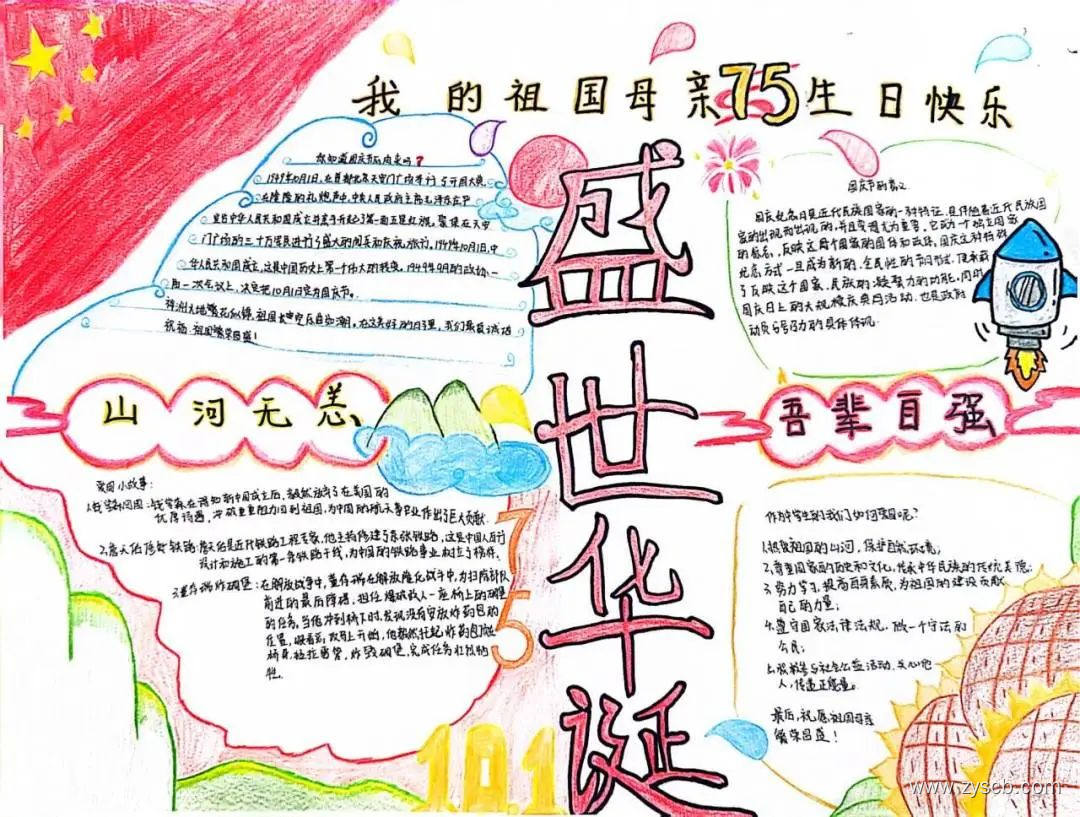 我的祖国母亲75生日快乐
你知道国庆节的由来吗?
1949年10月1日,在首都北京天安门广场举行了开国大典,
在隆隆的礼炮声中,中央人民政府主席毛泽东庄严
宣告中华人民共和国成立并亲手升起了第一面五星红旗,聚集在天安
门广场的三十万军民进行了盛大的阅兵和庆祝游行,1949年10月1日,中
华人民共和国成立,这是中国历史上第一个伟大的转变,1949年9月的政协一
届一次会议上,决定把10月1日定为国庆节。
神州大地繁花似锦,祖国长空乐声如潮,在这美好的日子里,我们衷心诚恳
祝福:祖国繁荣昌盛!
国庆节的意义
国庆纪念日是近代民族国家的一种特征,是伴随着近代民族国
家的出现而出现的,并且变得尤为重要,它成为一个独立国家
的标志,反映这个国家的国体和政体,国庆这种特殊
纪念方式一旦成为新的、全民性的节日形式,便承载
了反映这个国家、民族的凝聚力的功能,同时
国庆日上的大规模庆典活动,也是政府
动员与号召力的具体体现.
盛世华诞
山河无恙
爱国小故事:
1.钱学森回国:钱学森在得知新中国成立后,毅然放弃了在美国的
优厚待遇,冲破重重阻力回到祖国,为中国的航天事业作出了巨大贡献.
2.詹天佑修筑铁路:詹天佑是近代铁路工程专家,他主持修建了京张铁路,这是中国人自行
设计和施工的第一条铁路干线,为中国的铁路事业树立了榜样.
3.董存瑞炸碉堡:在解放战争中,董存瑞在解放隆化战斗中,为扫清部队
前进的最后障碍,担任爆破敌人一座桥上的碉堡
的任务,当他冲到桥下时,发现没有安放炸药包的
位置,眼看
他毅然托起炸药包
拉
炸毁碉堡,完成任务壮烈牺
牲.
75
10.1
吾辈自强
作为学生的我们如何爱国呢?
1.热爱祖国的山河,保护自然环境;
2.尊重国家的历史和文化,传承中华民族的传统美德;
3.努力学习,提高自身素质,为祖国的建设贡献
自己的力量;
4.遵守国家法律法规,做一个守法的
公民;
5.积极参与社会公益活动,关心他
人,传递正能量。
最后,祝愿祖国母亲
繁荣昌盛!
www.zyseb.com